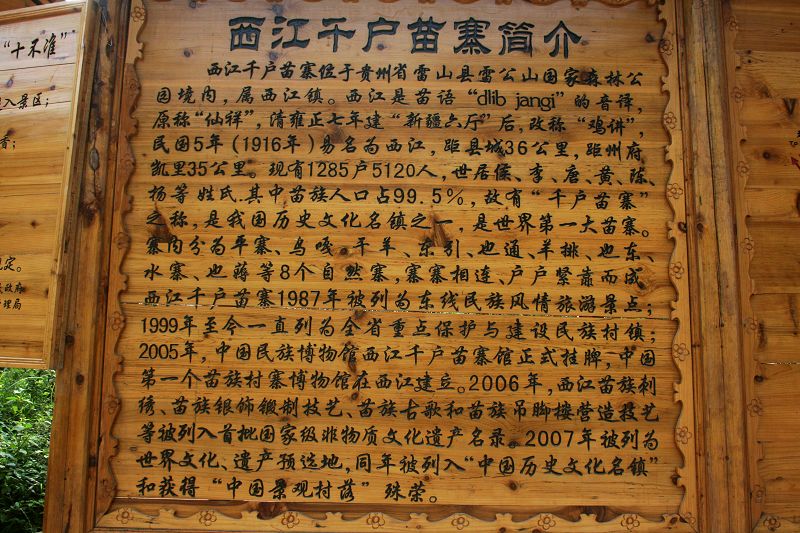 西江千户苗寨简介
西江千户苗寨位于贵州省雷山县雷公山国家森林公
园境内，属西江镇。西江是苗语“dlib jangi”的音译，
原称“仙祥”，清雍正七年建“新疆六厅”后，改称“鸡讲”，
民国5年(1916年)易名为西江，距县城36公里，距州府
凯里35公里。现有1285户5120人，世居侯、李、唐、黄、陈、
杨等姓氏.其中苗族人口占99.5%，故有“千户苗寨”
之称，是我国历史文化名镇之一，是世界第一大苗寨。
寨内分为平寨、乌嘎、干羊、东引、也通、羊排、也东、
水寨、也蒋等8个自然寨，寨寨相连、户户紧靠而成
西江千户苗寨1987年被列为东线民族风情旅游景点；
1999年至今一直列为全省重点保护与建设民族村镇；
2005年，中国民族博物馆西江千户苗寨馆正式挂牌，中国
第一个苗族村寨博物馆在西江建立。2006年，西江苗族刺
绣、苗族银饰锻制技艺、苗族古歌和苗族吊脚楼营造技艺
等被列入首批国家级非物质文化遗产名录。2007年被列为
世界文化、遗产预选地，同年被列入“中国历史文化名镇”
和获得“中国景观村落”殊荣。
“十不准”
入景区；
定。
政府
理局